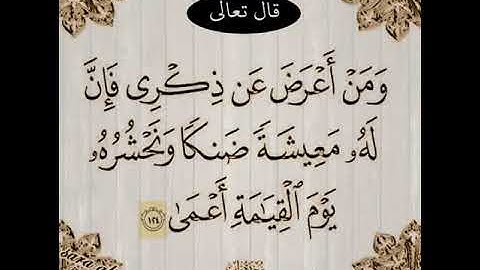 قال تعالى
وَمَنْ أَعْرَضَ عَن ذِكْرِى فَإِنَّ
لَهُۥ مَعِيشَةً ضَنكًا وَنَحْشُرُهُۥ
يَوْمَ ٱلْقِيَـٰمَةِ أَعْمَىٰ ١٢٤